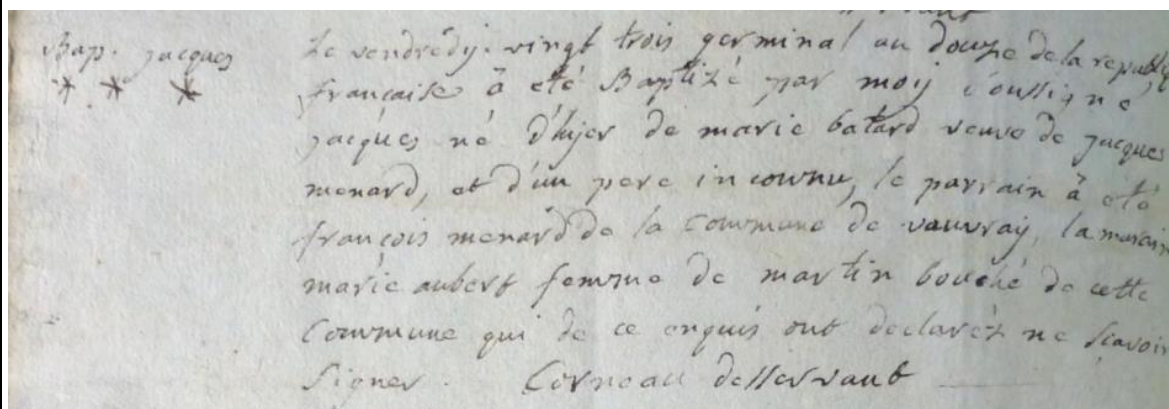 Bap. jacques
* * *
Le vendredy vingt trois germinal an douze de la republ
française à eté Baptizé par moy soussigné
jacques né d'hyer de marie batard veuve de jacques
menard, et d'un pere inconnu, le parrain à eté
françois menard de la Commune de vouvray, la marain
marie aubert femme de martin bouché de cette
Commune qui de ce enquis ont declaréz ne scavoir
signer. Corneau desservant